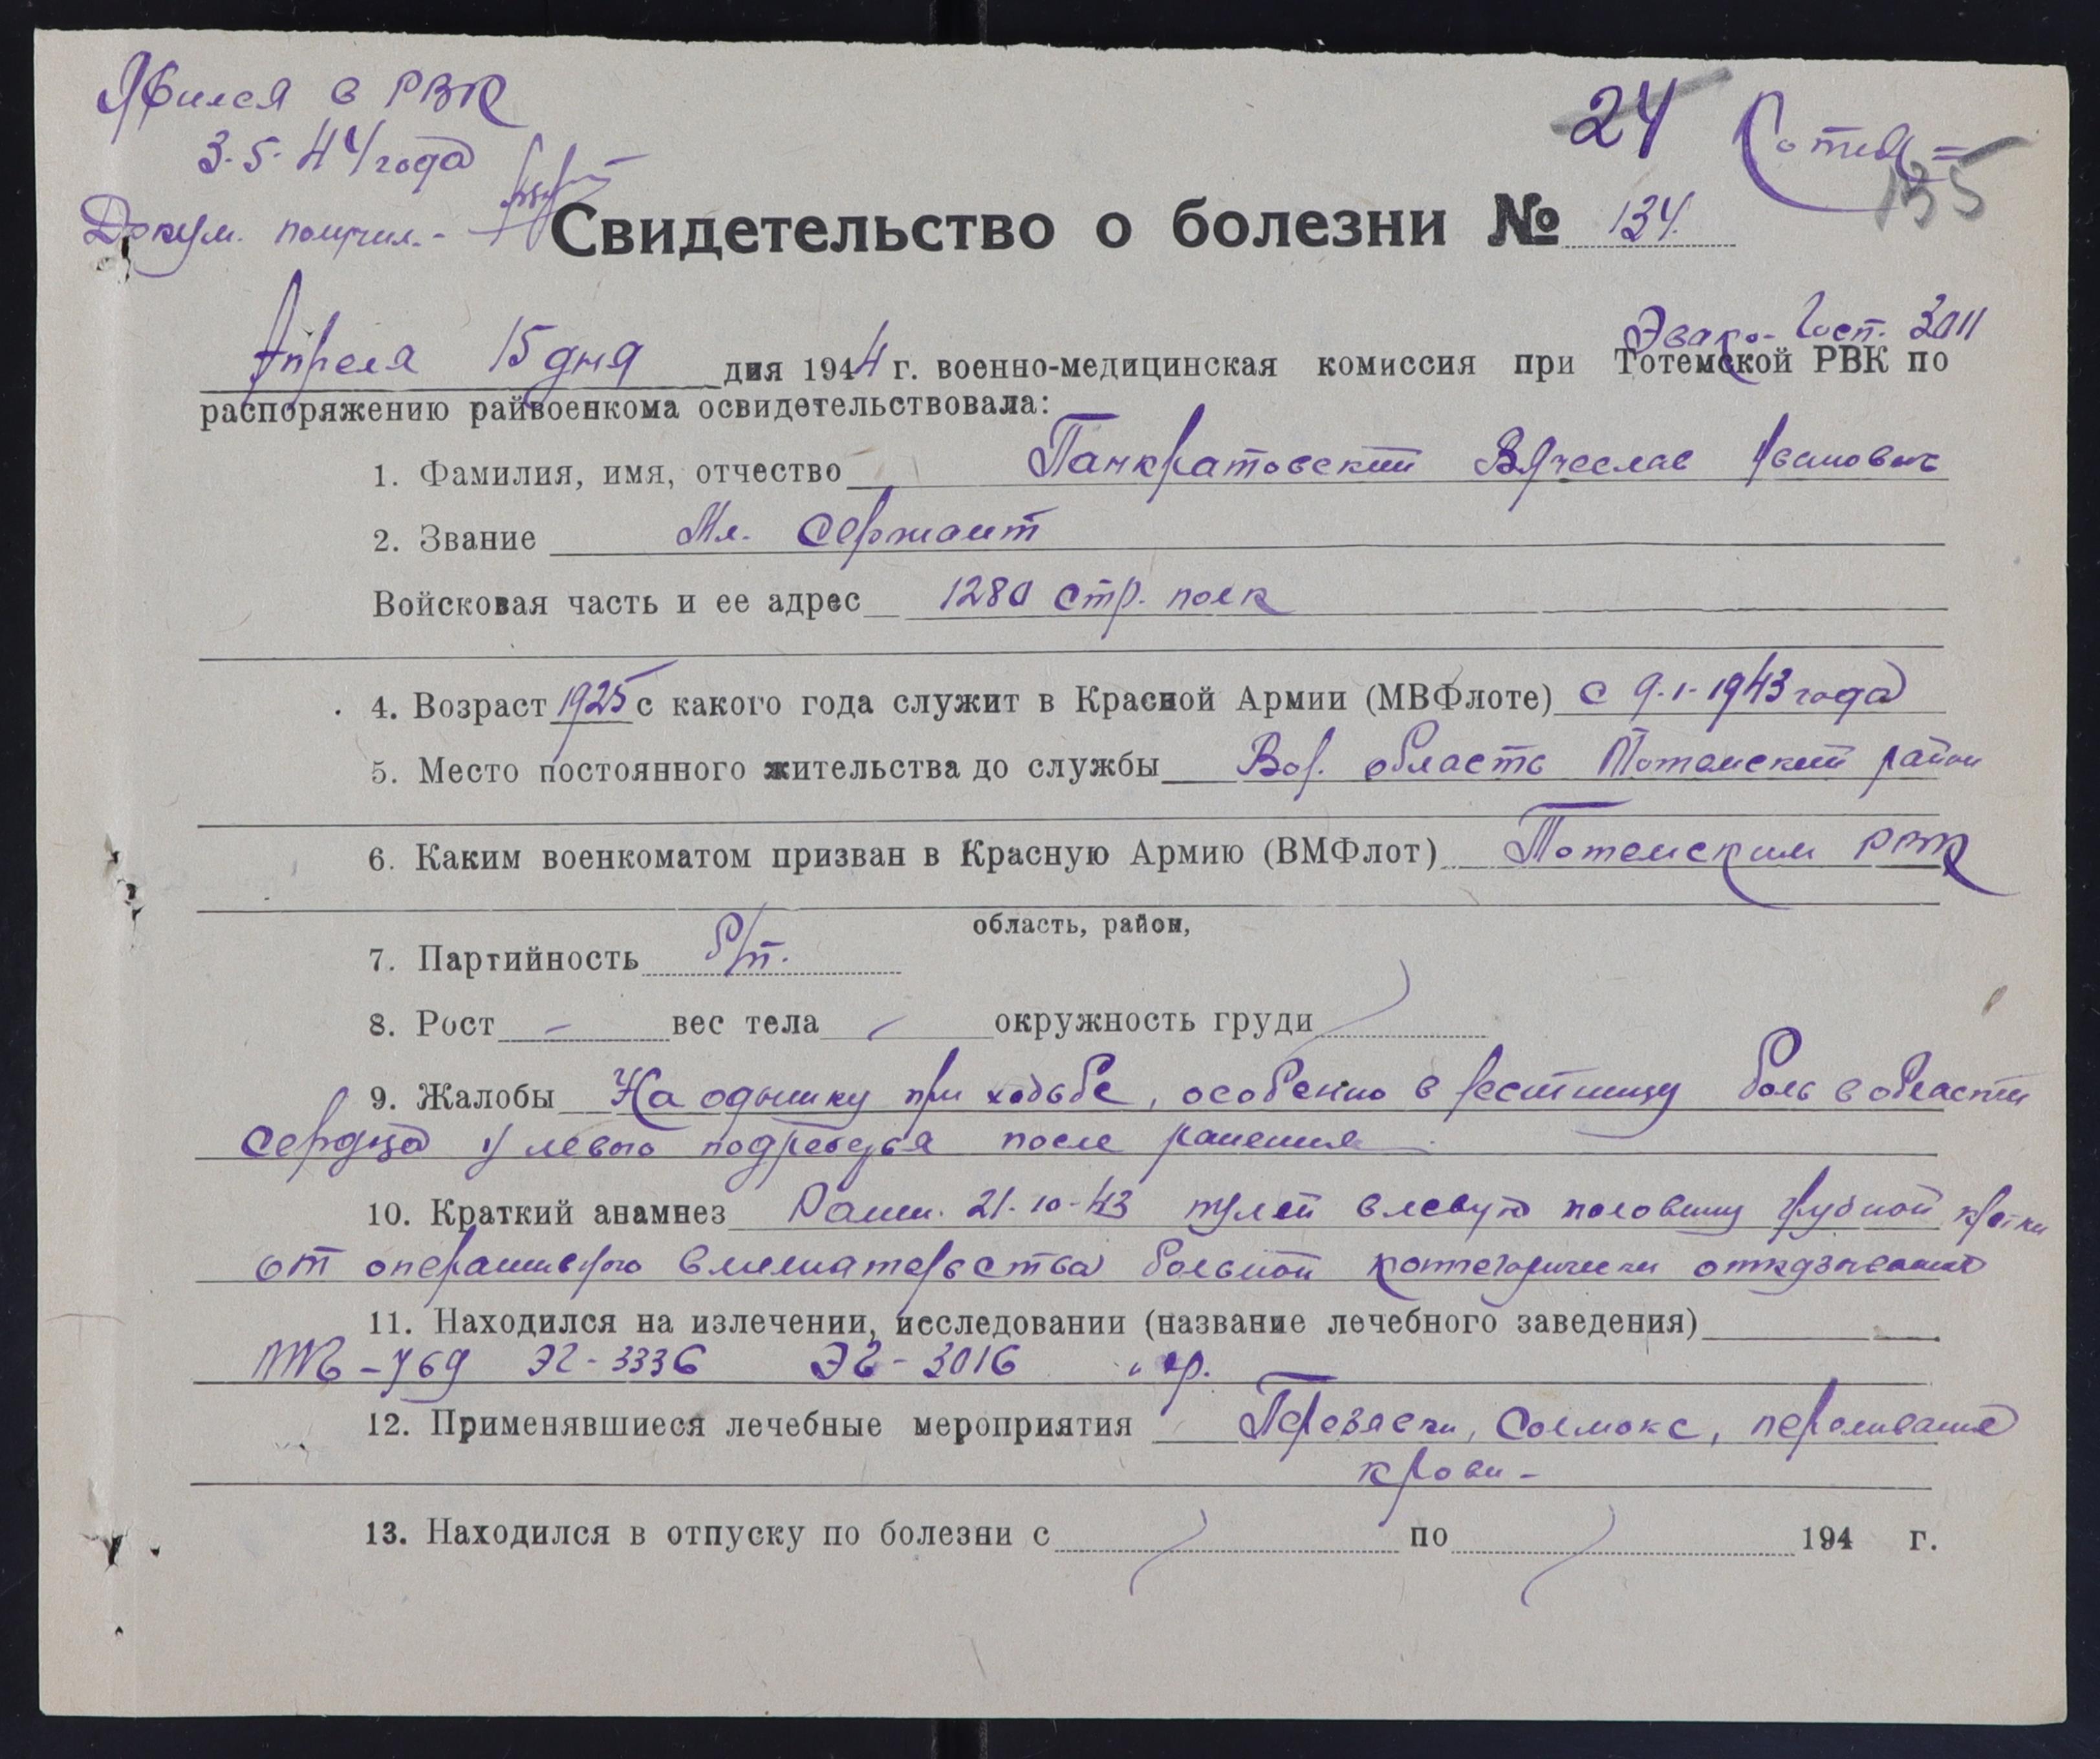 Явился в РВК
3.5.44 года
Докум. получил. -
24
135
Свидетельство о болезни № 134.
Эвако-Госп. 3011
Апреля 15 дня дня 1944 г. военно-медицинская комиссия при Тотемской РВК по
распоряжению райвоенкома освидетельствовала:
1. Фамилия, имя, отчество Панкратовский Вячеслав Иванович
2. Звание Мл. Сержант
Войсковая часть и ее адрес 1280 стр. полк
4. Возраст 1925 с какого года служит в Красной Армии (МВФлоте) с 9.1-1943 года
5. Место постоянного жительства до службы Вол. область Тотемский район
6. Каким военкоматом призван в Красную Армию (ВМФлот) Тотемским РВК
область, район,
7. Партийность
8. Рост - вес тела окружность груди
9. Жалобы На одышку при ходьбе, особенно в лестницу боль в области
сердца и левого подреберья после ранения
10. Краткий анамнез Ранен. 21-10-43 пулей в левую половину грудной клетки
от оперативного вмешательства больной категорически отказывается
11. Находился на излечении, исследовании (название лечебного заведения)
769 ЭГ-3336 ЭГ-3016 и др.
12. Применявшиеся лечебные мероприятия Перевязки, Солюкс, переливание
крови -
13. Находился в отпуску по болезни с по 194 г.